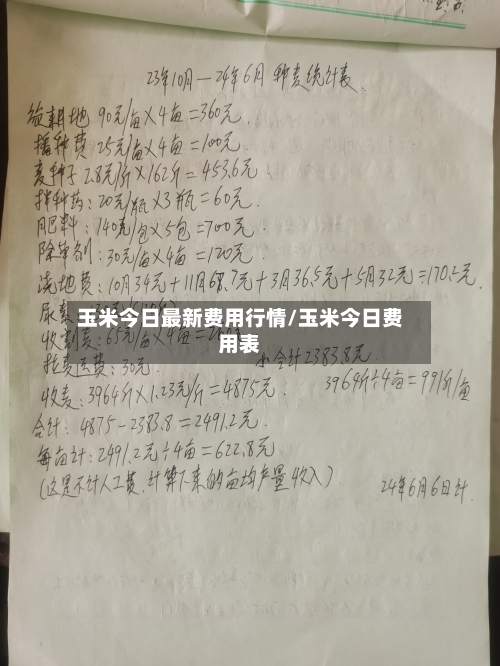 23年10月—24年6月 种麦统计表
旋耕地 90元/亩×4亩=360元.
播种费 25元/亩×4亩=100元.
麦种子 2.8元/斤×162斤=453.6元
拌种药:20元/瓶×3瓶=60元.
肥料:140元/包×5包=700元.
除草剂:30元/亩×4亩=120元.
浇地费:10月34元+11月68.7元+3月36.5元+5月32元=170.2元.
尿素
玉米今日最新费用行情/玉米今日费
用表
收割费:65元/亩×4亩=
拉麦运费:30元. 小合计2383.8元.
收麦:3964斤×1.23元/斤=4875元. 3964斤÷4亩=991斤/亩
合计:4875-2383.8=2491.2元.
每亩计:2491.2元÷4亩=622.8元
(这是不计人工费.计算下来的亩均产量收入)
24年6月6日计.